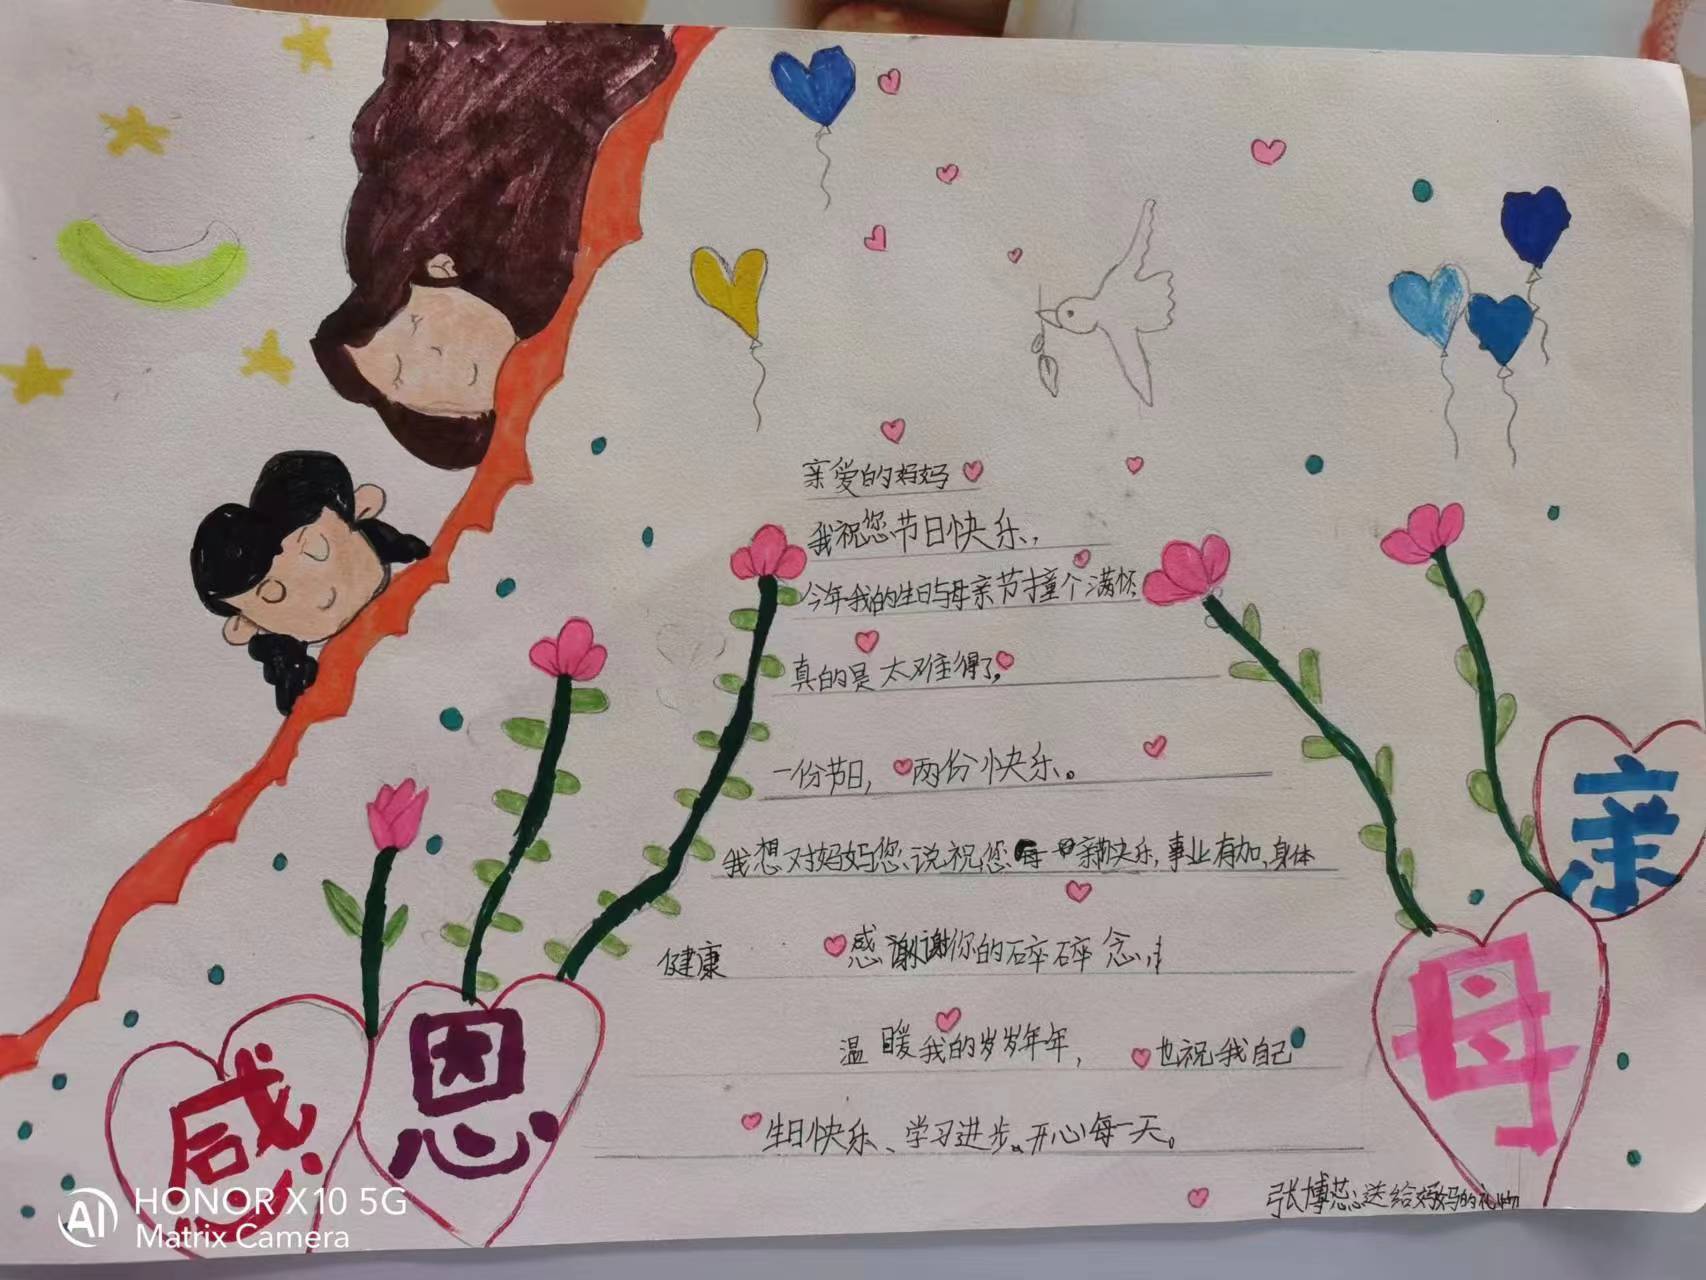 亲爱的妈妈
我祝您节日快乐,
今年我的生日与母亲节撞个满怀
真的是太难得了,
一份节日,两份快乐。
我想对妈妈您说祝您母亲节快乐,事业有加,身体
健康 感谢谢你的碎碎念,
温暖我的岁岁年年, 也祝我自己
生日快乐、学习进步、开心每一天。
张博蕊送给妈妈的礼物
感恩母亲
HONOR X10 5G
Matrix Camera
AI